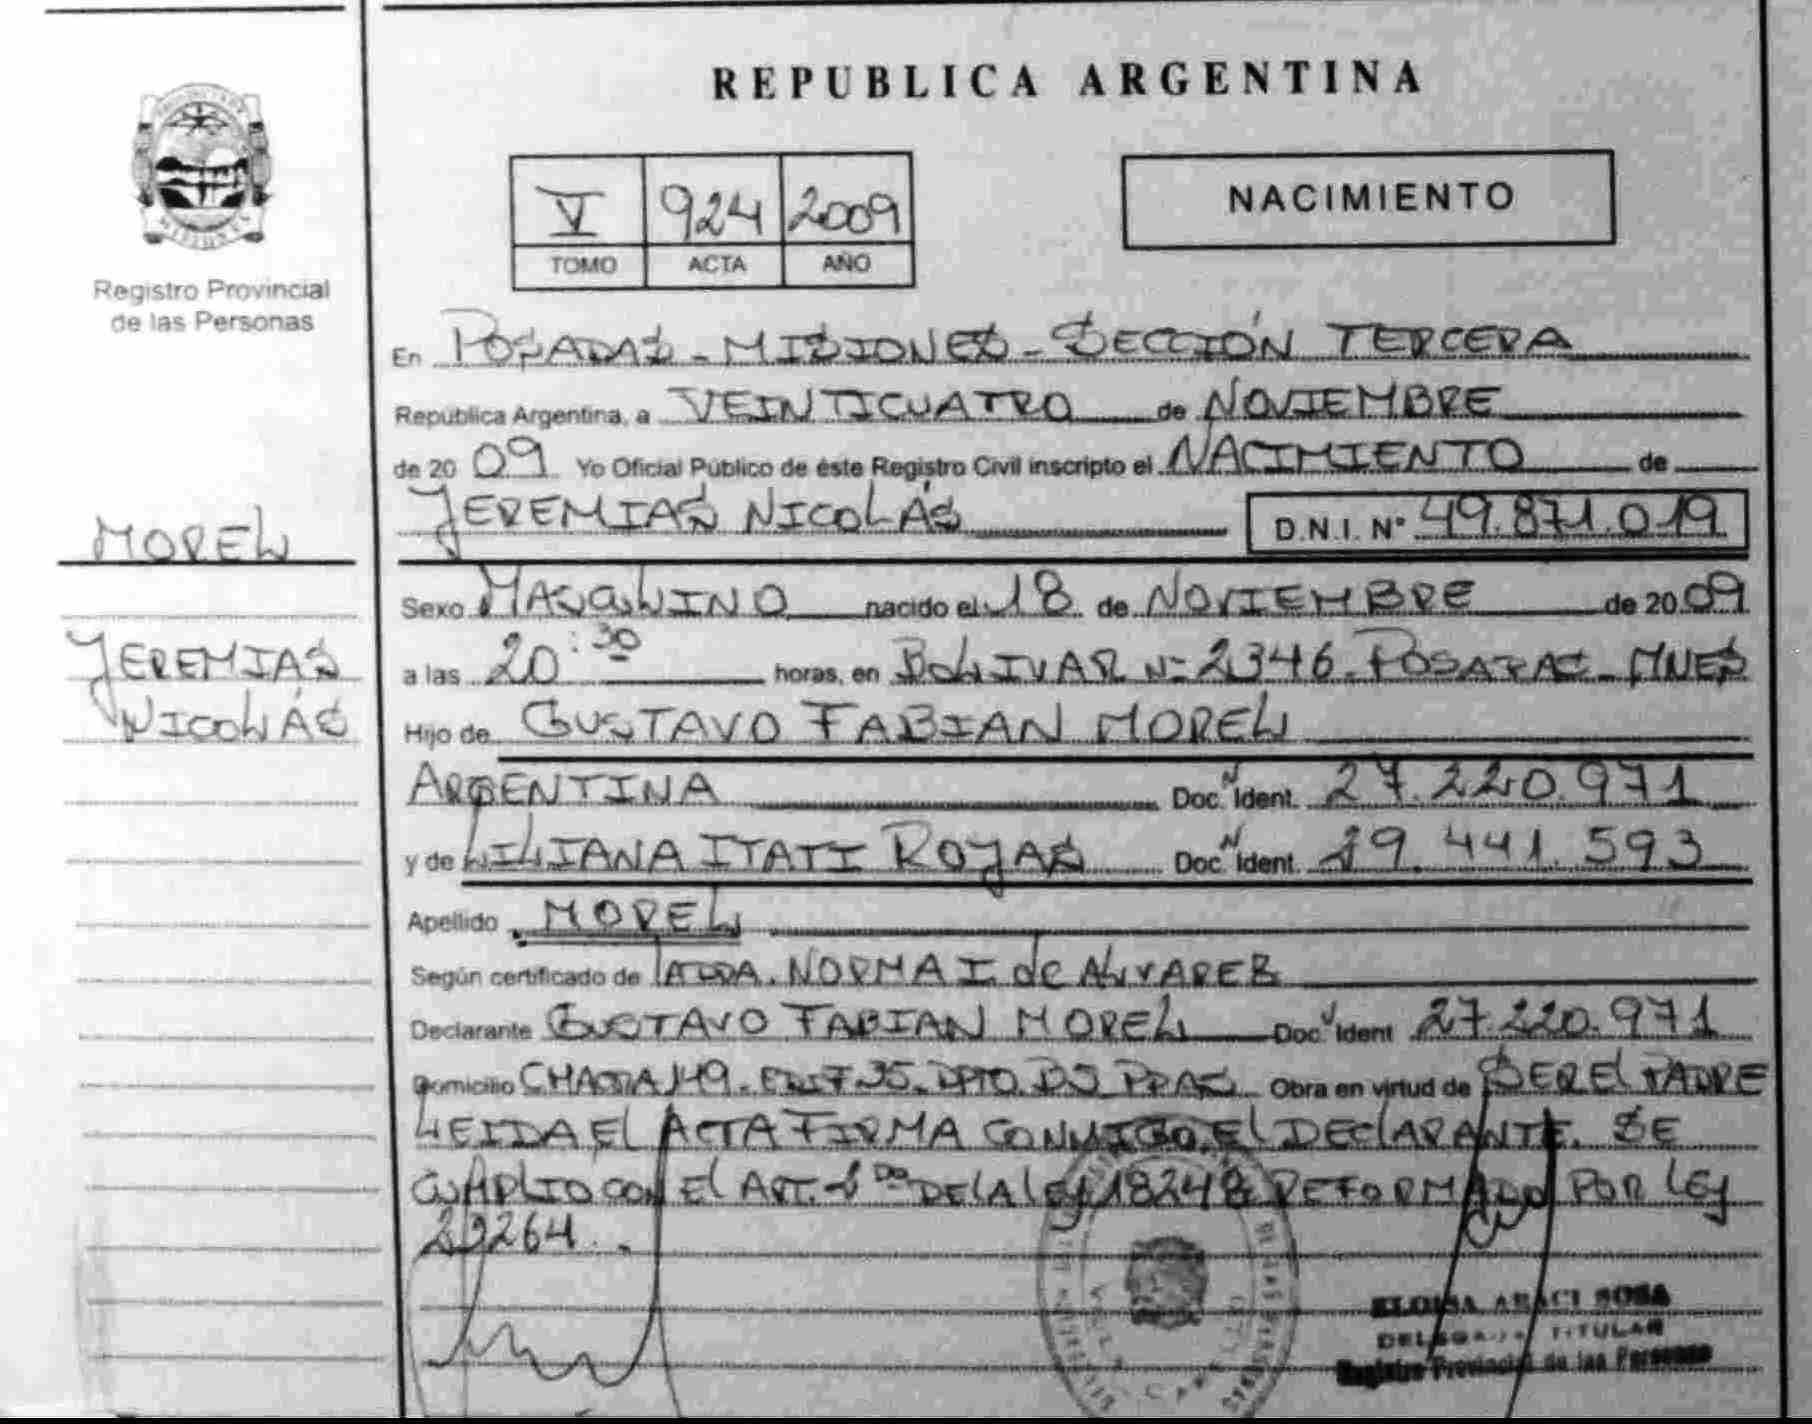 REPUBLICA ARGENTINA
V 924 2009
TOMO ACTA AÑO
NACIMIENTO
Registro Provincial
de las Personas
En POSADAS - MISIONES - SECCIÓN TERCERA
Republica Argentina, a VEINTICUATRO de NOVIEMBRE
de 20 09 Yo Oficial Público de éste Registro Civil inscripto el NACIMIENTO de
JEREMIAS NICOLÁS D.N.I. Nº 49.871.019
MOREL
Sexo MASCULINO nacido el 18 de NOVIEMBRE de 20 09
JEREMIAS
NICOLÁS
a las 20:30 horas, en BOLIVAR Nº 2346. POSADAS - MNES
Hijo de GUSTAVO FABIAN MOREL
ARGENTINA Doc. Ident. 27.220.971
y de LILIANA ITATI ROJAS Doc. Ident. 29.441.593
Apellido MOREL
Según certificado de NORMA I de ALVAREB
Declarante GUSTAVO FABIAN MOREL Doc. Ident 27.220.971
Domicilio CHACRA 149. EDIF 35. DPTO. PDAS Obra en virtud de SER EL PADRE
LEIDA EL ACTA FIRMA CONMIGO EL DECLARANTE. SE
CUMPLIO CON EL ART. 2do DE LA LEY 18248 REFORMADO POR LEY
23264.
ELOISA ARACI SOSA
DELEGADA TITULAR
Registro Provincial de las Personas